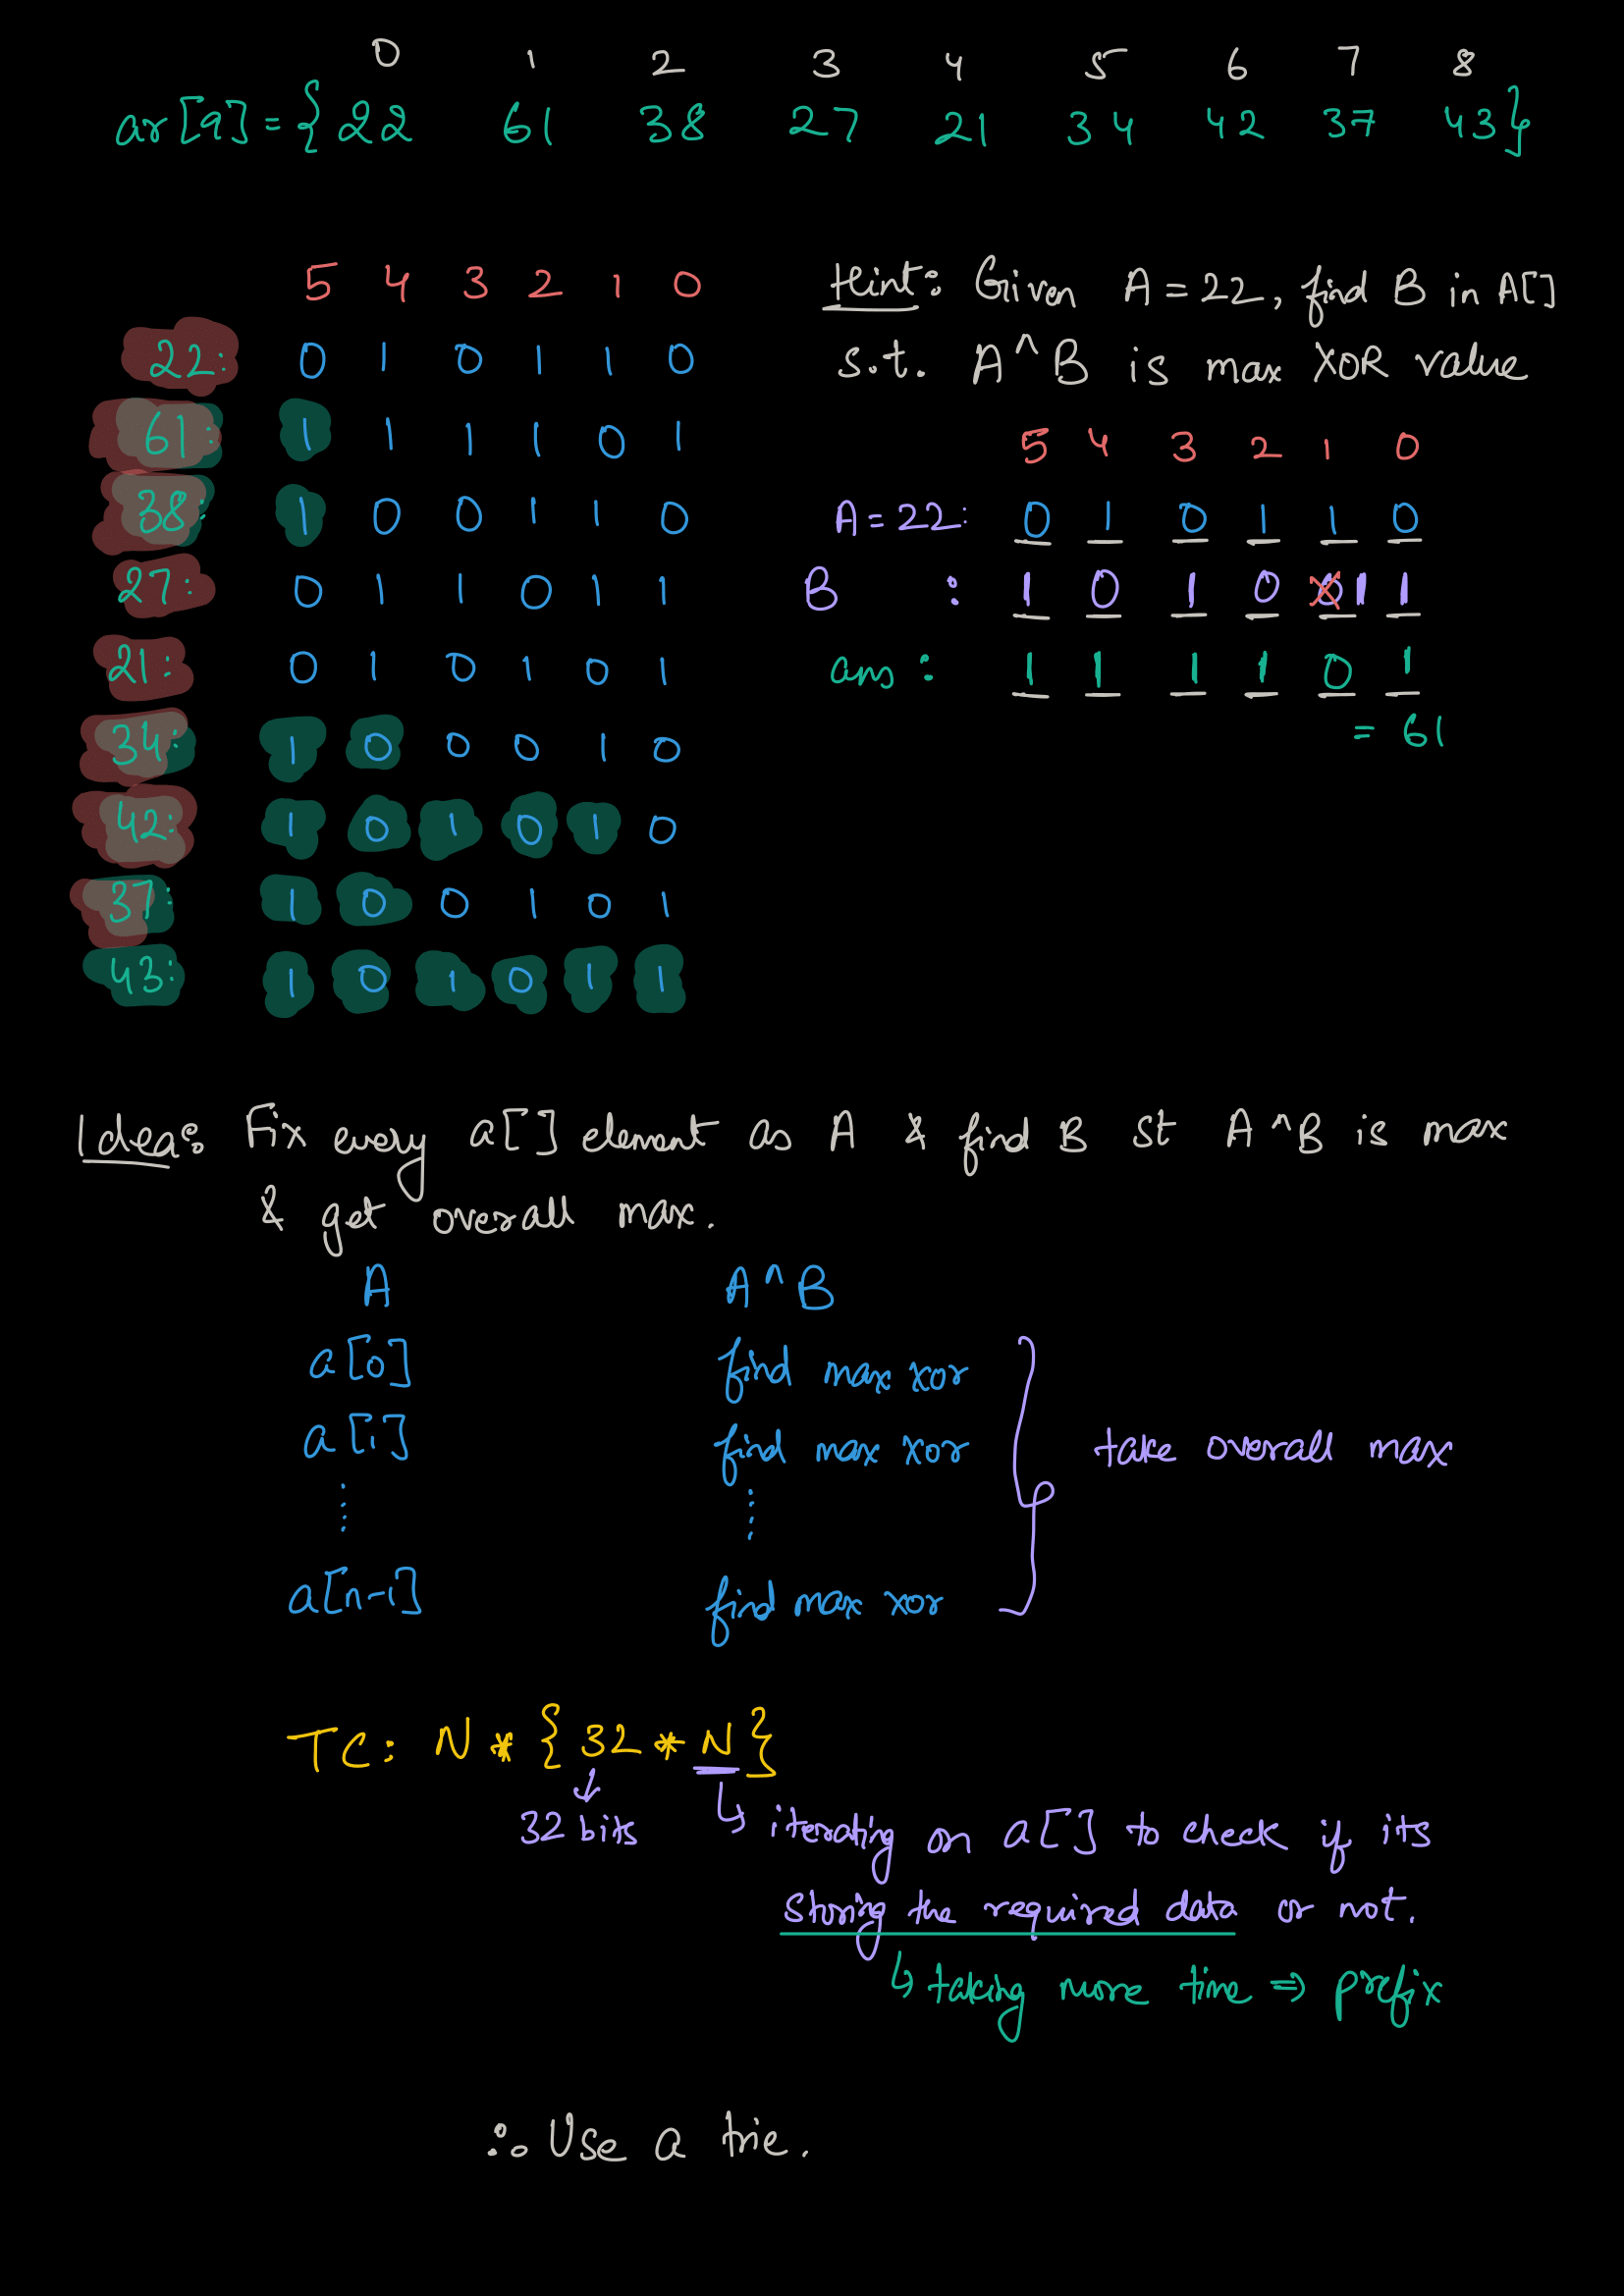 0 1 2 3 4 5 6 7 8
ar[9] = { 22 61 38 27 21 34 42 37 43 }
5 4 3 2 1 0
22: 0 1 0 1 1 0
61: 1 1 1 1 0 1
38: 1 0 0 1 1 0
27: 0 1 1 0 1 1
21: 0 1 0 1 0 1
34: 1 0 0 0 1 0
42: 1 0 1 0 1 0
37: 1 0 0 1 0 1
43: 1 0 1 0 1 1
Hint: Given A = 22, find B in A[]
s.t. A^B is max XOR value
5 4 3 2 1 0
A = 22: 0 1 0 1 1 0
B : 1 0 1 0 0 1 1
ans : 1 1 1 1 0 1
= 61
Idea: Fix every a[] element as A & find B st A^B is max
& get overall max.
A A^B
a[0] find max xor
a[1] find max xor
take overall max
a[n-1] find max xor
TC: N * { 32 * N }
32 bits ↳ iterating on a[] to check if its
storing the required data or not.
↳ taking more time ⇒ prefix
∴ Use a trie.